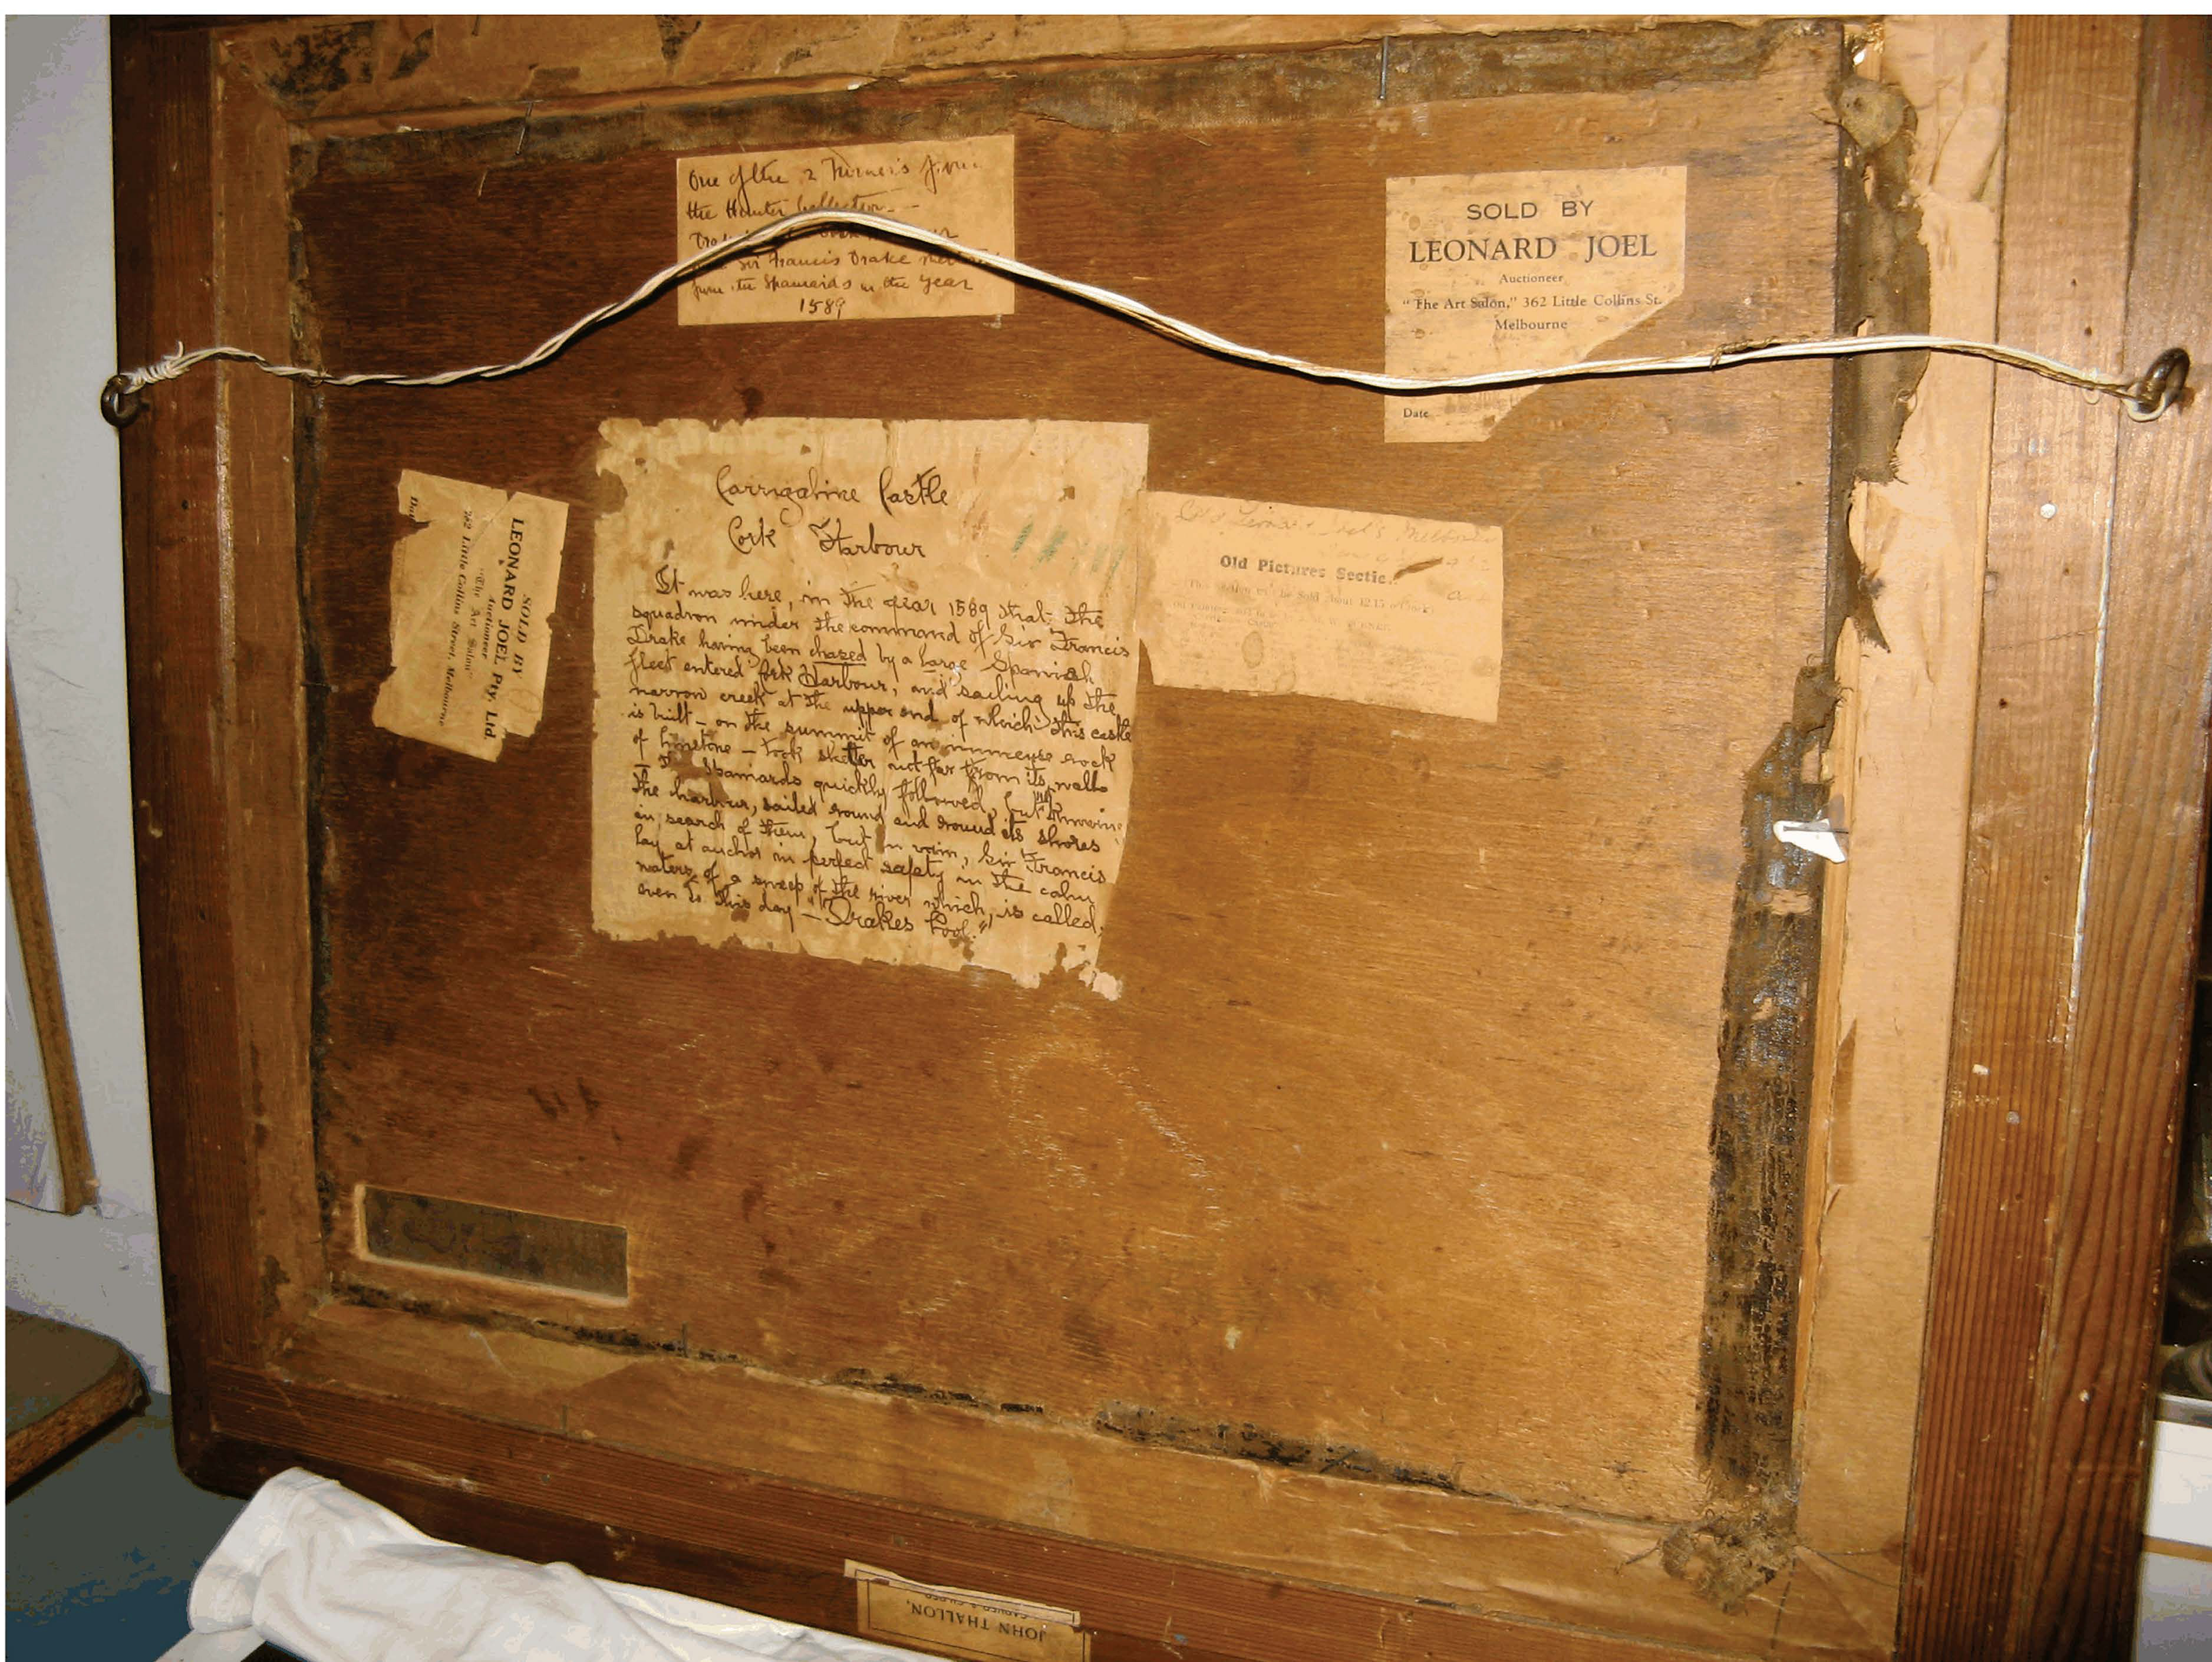 One of the 2 Turner's from
the Hunter Collection
Sir Francis Drake
from the Spaniards in the year
1589
SOLD BY
LEONARD JOEL
Auctioneer
"The Art Salon," 362 Little Collins St.
Melbourne
Date
SOLD BY
LEONARD JOEL Pty. Ltd.
Auctioneer
"The Art Salon"
362 Little Collins Street, Melbourne
Carrigaline Castle
Cork Harbour
It was here, in the year 1589 that the
squadron under the command of Sir Francis
Drake having been chazed by a large Spanish
fleet entered Cork Harbour, and sailing up the
narrow creek at the upper end of which this castle
is built – on the summit of an immense rock
of limstone – took shelter not far from its walls
– The Spaniards quickly followed, but
the harbour, sailed round and round its shores
in search of them, but in vain, Sir Francis
lay at anchor in perfect safety in the calm
waters of a sweep of the river which, is called,
even to this day – "Drakes Pool."
Old Pictures Sectio
be Sold about 12.15
JOHN THALLON,